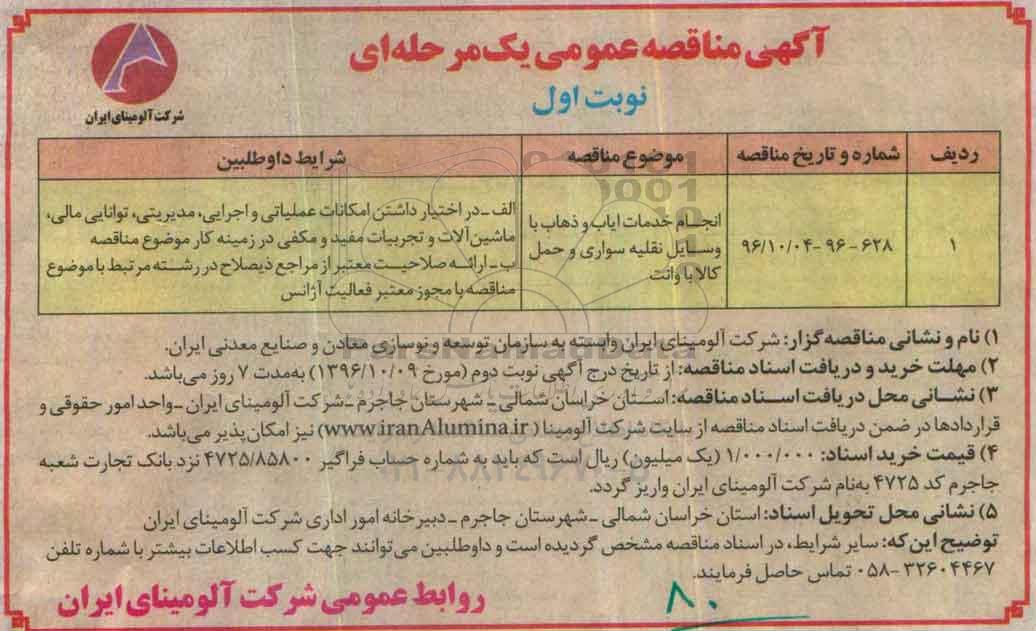 آگهی مناقصه عمومی یک‌مرحله‌ای
نوبت اول
شرکت آلومینای ایران
ردیف
شماره و تاریخ مناقصه
موضوع مناقصه
شرایط داوطلبین
۱
۶۲۸-۹۶-۹۶/۱۰/۰۴
انجــام خدمات ایاب و ذهاب با
وســایل نقلیه سواری و حمل
کالا با وانت
الف ـ در اختیار داشتن امکانات عملیاتی و اجرایی، مدیریتی، توانایی مالی،
ماشین‌آلات و تجربیات مفید و مکفی در زمینه کار موضوع مناقصه
ب ـ ارائــه صلاحیــت معتبر از مراجع ذیصلاح در رشــته مرتبط با موضوع
مناقصه با مجوز معتبر فعالیت آژانس
۱) نام و نشانی مناقصه‌گزار: شرکت آلومینای ایران وابسته به سازمان توسعه و نوسازی معادن و صنایع معدنی ایران.
۲) مهلت خرید و دریافت اسناد مناقصه: از تاریخ درج آگهی نوبت دوم (مورخ ۱۳۹۶/۱۰/۰۹) به‌مدت ۷ روز می‌باشد.
۳) نشــانی محل دریافت اســناد مناقصه: اســتان خراسان شمالی ـ شهرستان جاجرم ـ شرکت آلومینای ایران ـ واحد امور حقوقی و
قراردادها در ضمن دریافت اسناد مناقصه از سایت شرکت آلومینا (www.iranAlumina.ir) نیز امکان‌پذیر می‌باشد.
۴) قیمت خرید اسناد: ۱/۰۰۰/۰۰۰ (یک میلیون) ریال است که باید به شماره حساب فراگیر ۴۷۲۵/۸۵۸۰۰ نزد بانک تجارت شعبه
جاجرم کد ۴۷۲۵ به‌نام شرکت آلومینای ایران واریز گردد.
۵) نشانی محل تحویل اسناد: استان خراسان شمالی ـ شهرستان جاجرم ـ دبیرخانه امور اداری شرکت آلومینای ایران
توضیح این‌که: سایر شرایط، در اسناد مناقصه مشخص گردیده است و داوطلبین می‌توانند جهت کسب اطلاعات بیشتر با شماره تلفن
۰۵۸-۳۲۶۰۴۴۶۷ تماس حاصل فرمایند.
روابط عمومی شرکت آلومینای ایران
۸۰